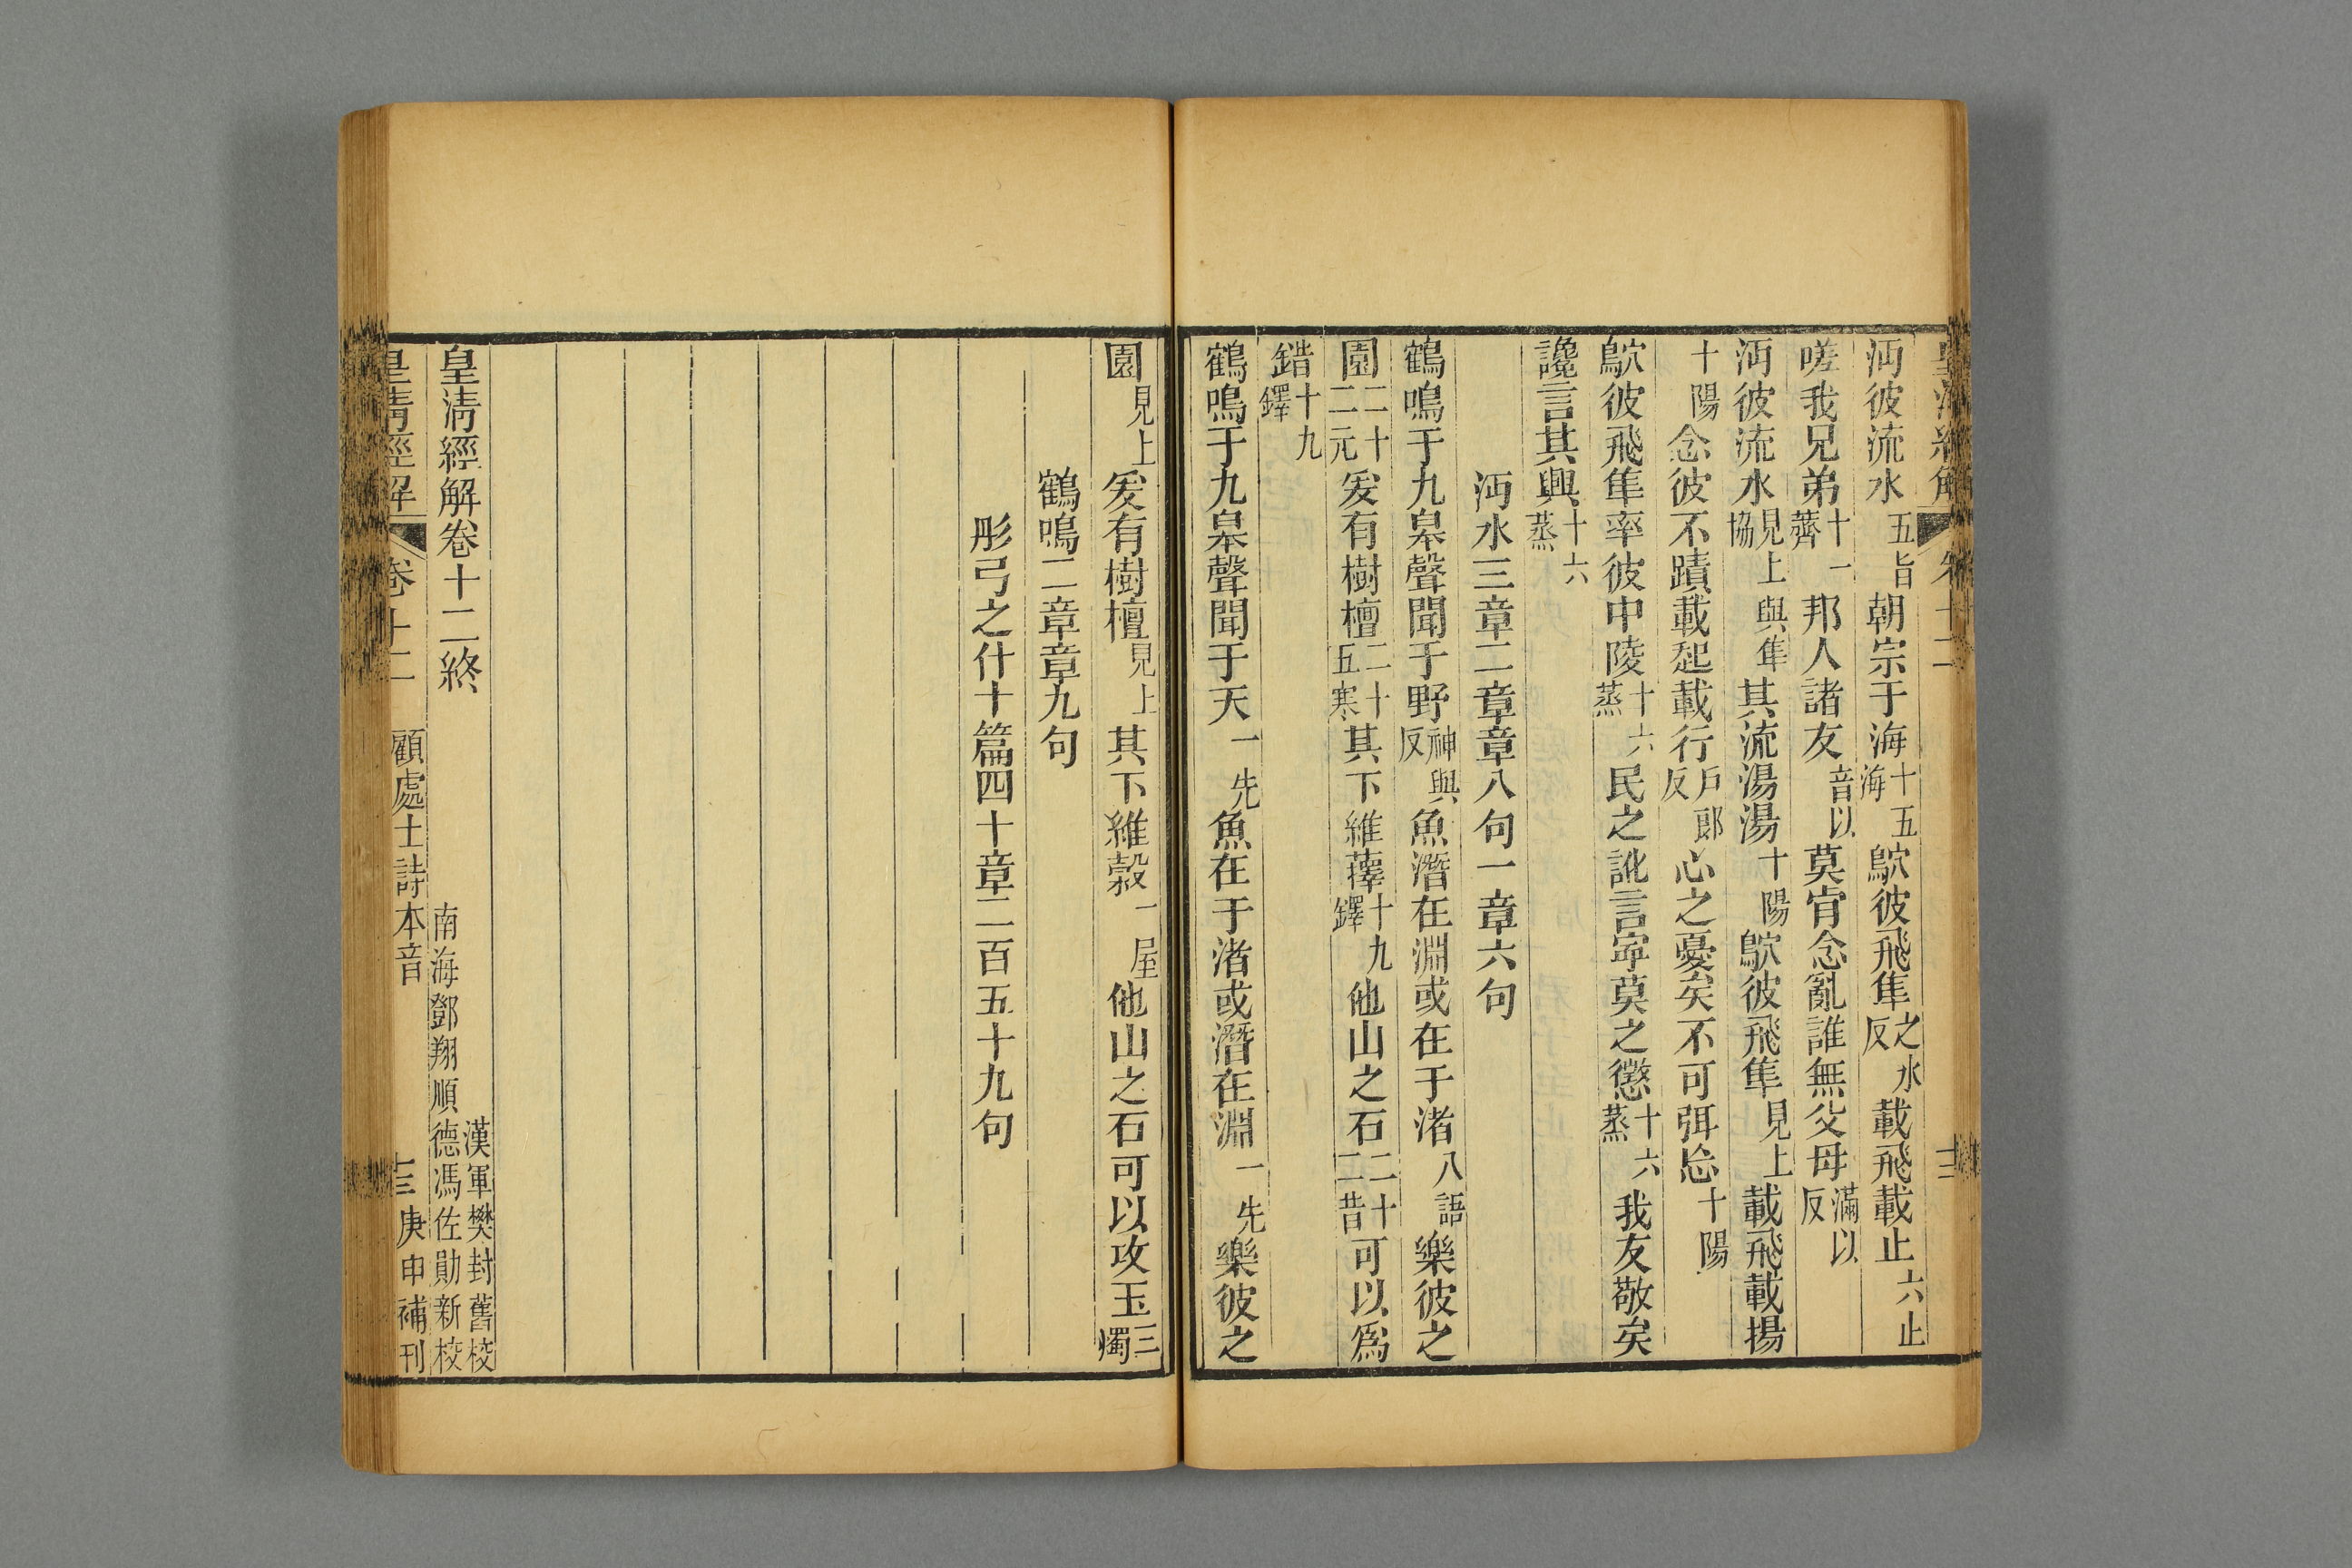 沔彼流水五旨朝宗于海十五海鴥彼飛隼之水反載飛載止六止
嗟我兄弟十一薺邦人諸友音以莫肯念亂誰無父母滿以反
沔彼流水見上與隼協其流湯湯十陽鴥彼飛隼見上載飛載揚
十陽念彼不蹟載起載行戶郎反心之憂矣不可弭忘十陽
鴥彼飛隼率彼中陵十六蒸民之訛言寧莫之懲十六蒸我友敬矣
讒言其興十六蒸
沔水三章二章章八句一章六句
鶴鳴于九皋聲聞于野神與反魚潛在淵或在于渚八語樂彼之
園二十二元爰有樹檀二十五寒其下維蘀十九鐸他山之石二十二昔可以爲
錯十九鐸
鶴鳴于九皋聲聞于天一先魚在于渚或潛在淵一先樂彼之
園見上爰有樹檀見上其下維榖一屋他山之石可以攻玉三燭
鶴鳴二章章九句
彤弓之什十篇四十章二百五十九句
皇清經解卷十二終
漢軍樊封舊校
南海鄧翔順德馮佐勛新校
皇清經解 卷十二 顧處士詩本音 十三 庚申補刊